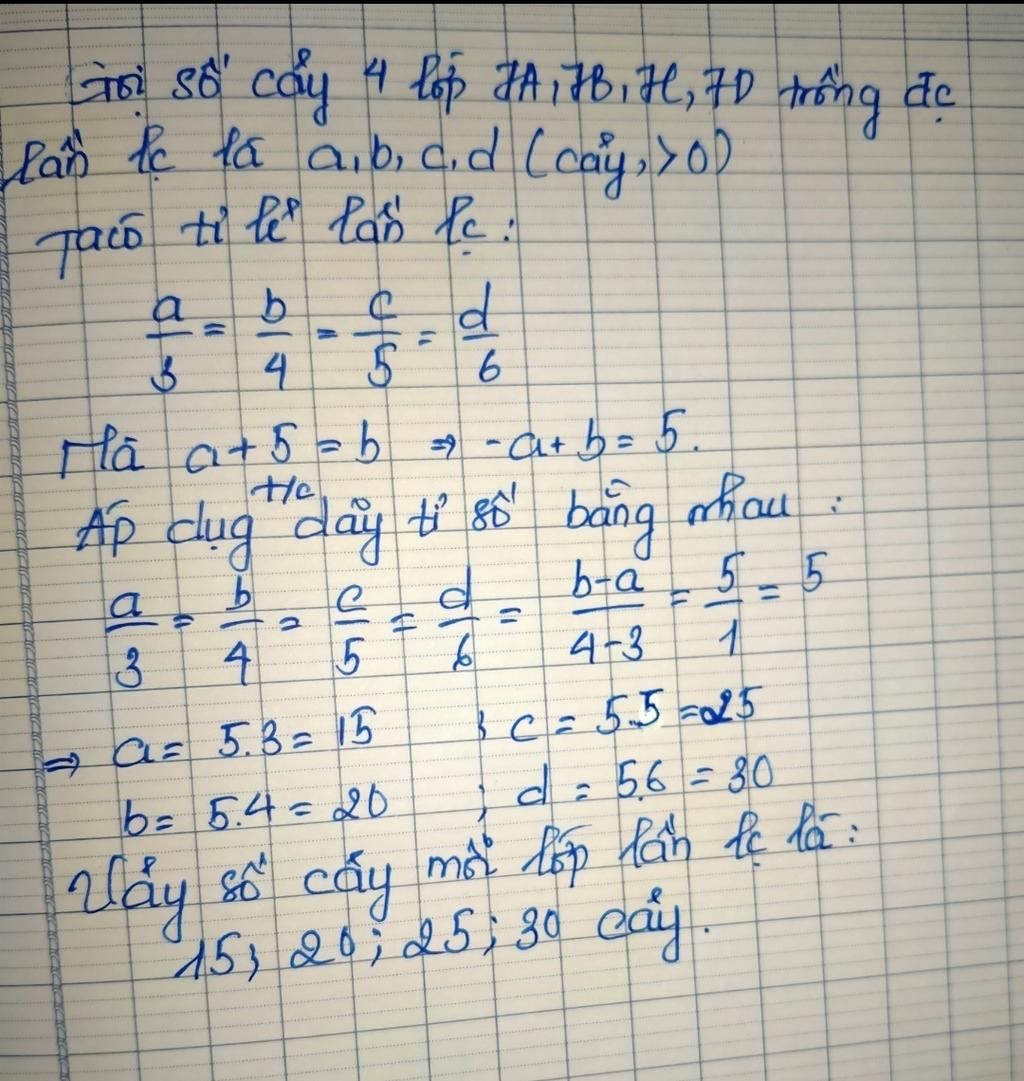 Gọi số cây 4 lớp 7A, 7B, 7C, 7D trồng đc
lần lc là a, b, c, d (cây, >0)
Ta có tỉ lệ lần lc :
a/3 = b/4 = c/5 = d/6
Mà a + 5 = b ⇒ -a + b = 5.
Áp dụg t/c dãy tỉ số bằng nhau :
a/3 = b/4 = c/5 = d/6 = b-a/4-3 = 5/1 = 5
⇒ a = 5.3 = 15 ; c = 5.5 = 25
b = 5.4 = 20 ; d = 5.6 = 30
Vậy số cây mỗi lớp lần lc là :
15; 20; 25; 30 cây.